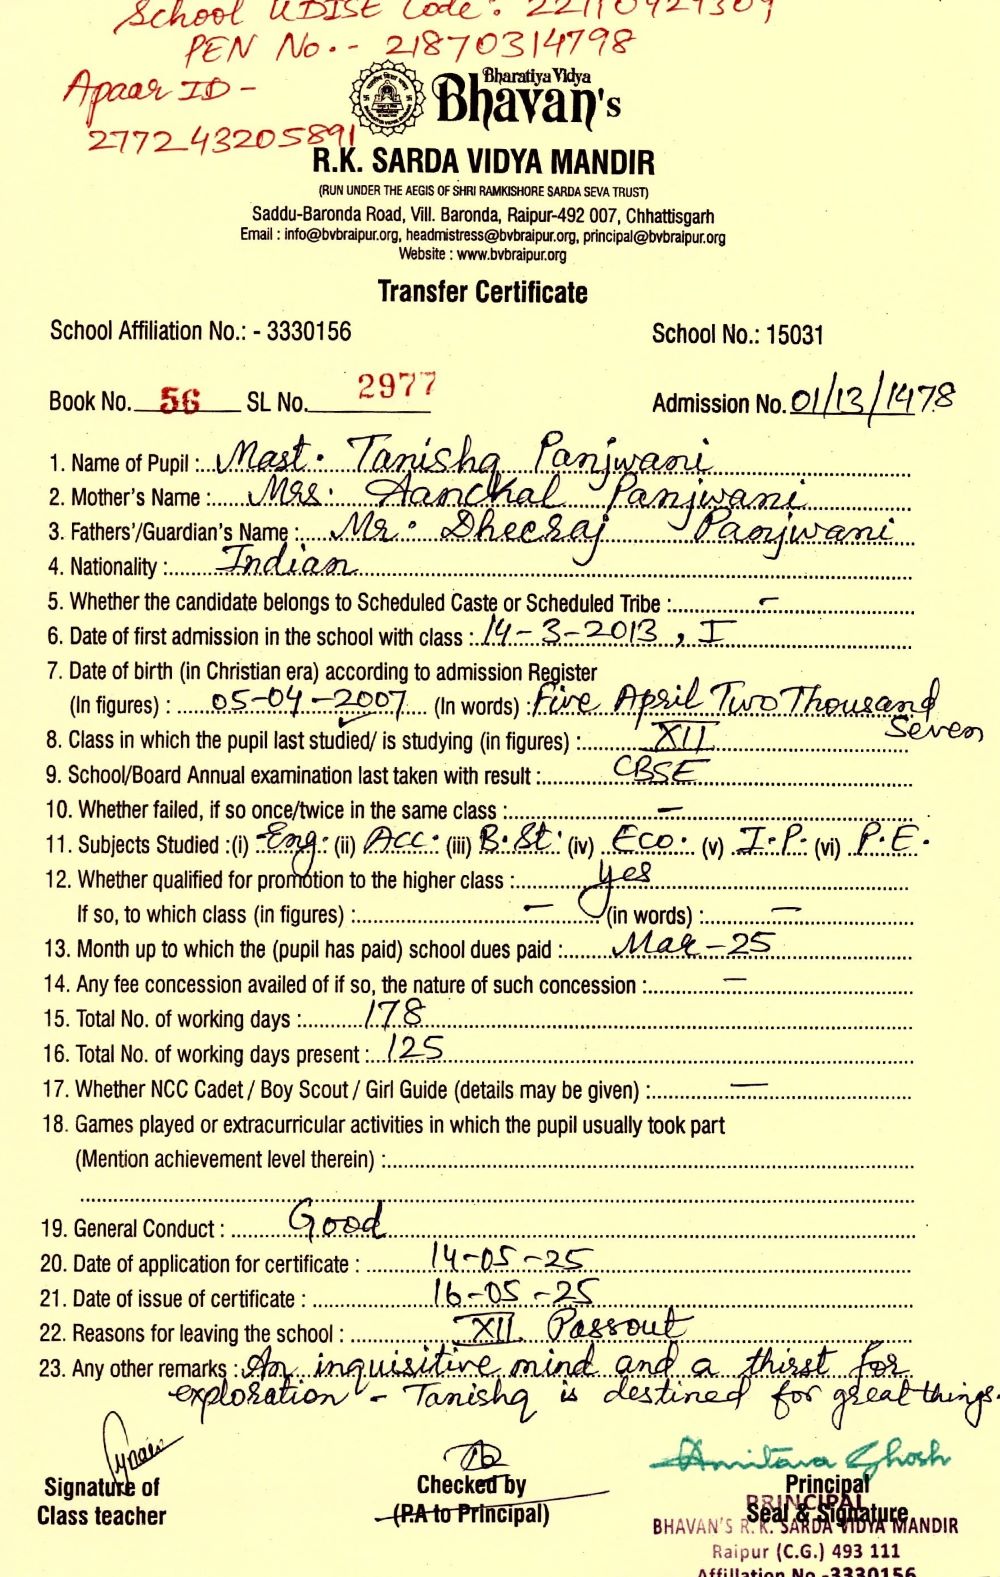 School UDISE Code: 22110927309
PEN No.- 21870314798
Apaar ID -
277243205891
Bharatiya Vidya
Bhavan's
R.K. SARDA VIDYA MANDIR
(RUN UNDER THE AEGIS OF SHRI RAMKISHORE SARDA SEVA TRUST)
Saddu-Baronda Road, Vill. Baronda, Raipur-492 007, Chhattisgarh
Email : info@bvbraipur.org, headmistress@bvbraipur.org, principal@bvbraipur.org
Website : www.bvbraipur.org
Transfer Certificate
School Affiliation No.: - 3330156 School No.: 15031
Book No. 56 SL No. 2977 Admission No. 01/13/1478
1. Name of Pupil : Mast. Tanishq Panjwani
2. Mother's Name : Mrs. Aanchal Panjwani
3. Fathers'/Guardian's Name : Mr. Dheeraj Panjwani
4. Nationality : Indian
5. Whether the candidate belongs to Scheduled Caste or Scheduled Tribe : -
6. Date of first admission in the school with class : 14-3-2013, I
7. Date of birth (in Christian era) according to admission Register
(In figures) : 05-04-2007 (In words) : Five April Two Thousand Seven
8. Class in which the pupil last studied/ is studying (in figures) : XII
9. School/Board Annual examination last taken with result : CBSE
10. Whether failed, if so once/twice in the same class : -
11. Subjects Studied :(i) Eng. (ii) Acc. (iii) B.St. (iv) Eco. (v) I.P. (vi) P.E.
12. Whether qualified for promotion to the higher class : yes
If so, to which class (in figures) : - (in words) : -
13. Month up to which the (pupil has paid) school dues paid : Mar-25
14. Any fee concession availed of if so, the nature of such concession : -
15. Total No. of working days : 178
16. Total No. of working days present : 125
17. Whether NCC Cadet / Boy Scout / Girl Guide (details may be given) : -
18. Games played or extracurricular activities in which the pupil usually took part
(Mention achievement level therein) :
19. General Conduct : Good
20. Date of application for certificate : 14-05-25
21. Date of issue of certificate : 16-05-25
22. Reasons for leaving the school : XII Passout
23. Any other remarks : An inquisitive mind and a thirst for
exploration - Tanishq is destined for great things.
Amitava Ghosh
Signature of Checked by Principal
Class teacher (P.A to Principal) Seal & Signature
PRINCIPAL
BHAVAN'S R.K. SARDA VIDYA MANDIR
Raipur (C.G.) 493 111
Affiliation No.-3330156